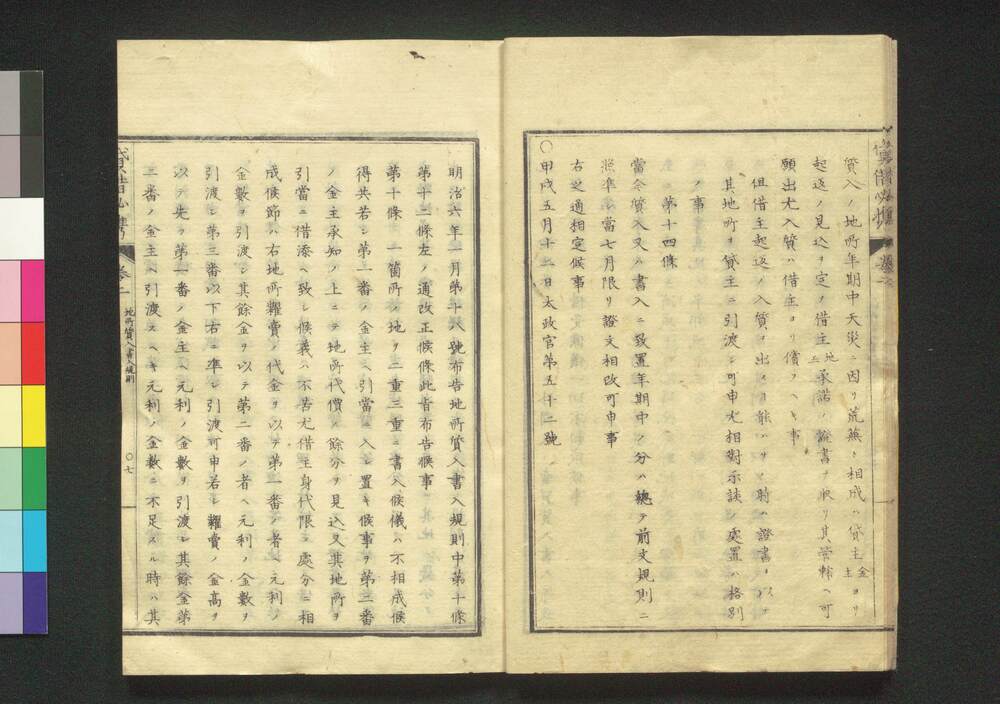 質入ノ地所年期中天災ニ因リ荒蕪ト相成ハ貸主金主ヨリ
起返ノ見込ヲ定メ借主地主承諾ノ證書ヲ取リ其管轄ヘ可
願出尤入質ハ借主ヨリ償フヘキ事
但借主起返ノ入質ヲ出スヿ能ハサル時ハ證書ヲ以テ
其地所ヲ貸主ニ引渡シ可申尤相對示談ノ處置ハ格別
ノ事
第十四條
當今質入又ハ書入ニ致置年期中ノ分ハ總テ前文規則ニ
照準シ當七月限リ證文相改可申事
右之通相定候事
〇甲戌五月十二日太政官第五十二號
明治六年一月第十八號布告地所質入書入規則中第十條
第十二條左ノ通改正候條此旨布告候事
第十條 一箇所ノ地ヲ二重三重ニ書入候儀ハ不相成候
得共若シ第二番ノ金主ヘ引當ニ入レ置キ候事ヲ第二番
ノ金主承知ノ上ニテ地所代價ノ餘分ヲ見込又其地所ヲ
引當ニ借添ヘ致シ候義ハ不苦尤借主身代限ノ處分ニ相
成候節ハ右地所糶賣ノ代金ヲ以テ第一番ノ者ヘ元利ノ
金數ヲ引渡シ其餘金ヲ以テ第二番ノ者ヘ元利ノ金數ヲ
引渡シ第三番以下右ニ準シ引渡可申若シ糶賣ノ金高ヲ
以テ先ツ第一番ノ金主ヘ元利ノ金數ヲ引渡シ其餘金第
二番ノ金主ヘ引渡スヘキ元利ノ金數ニ不足スル時ハ其
卷二
地所質入書入規則
〇七